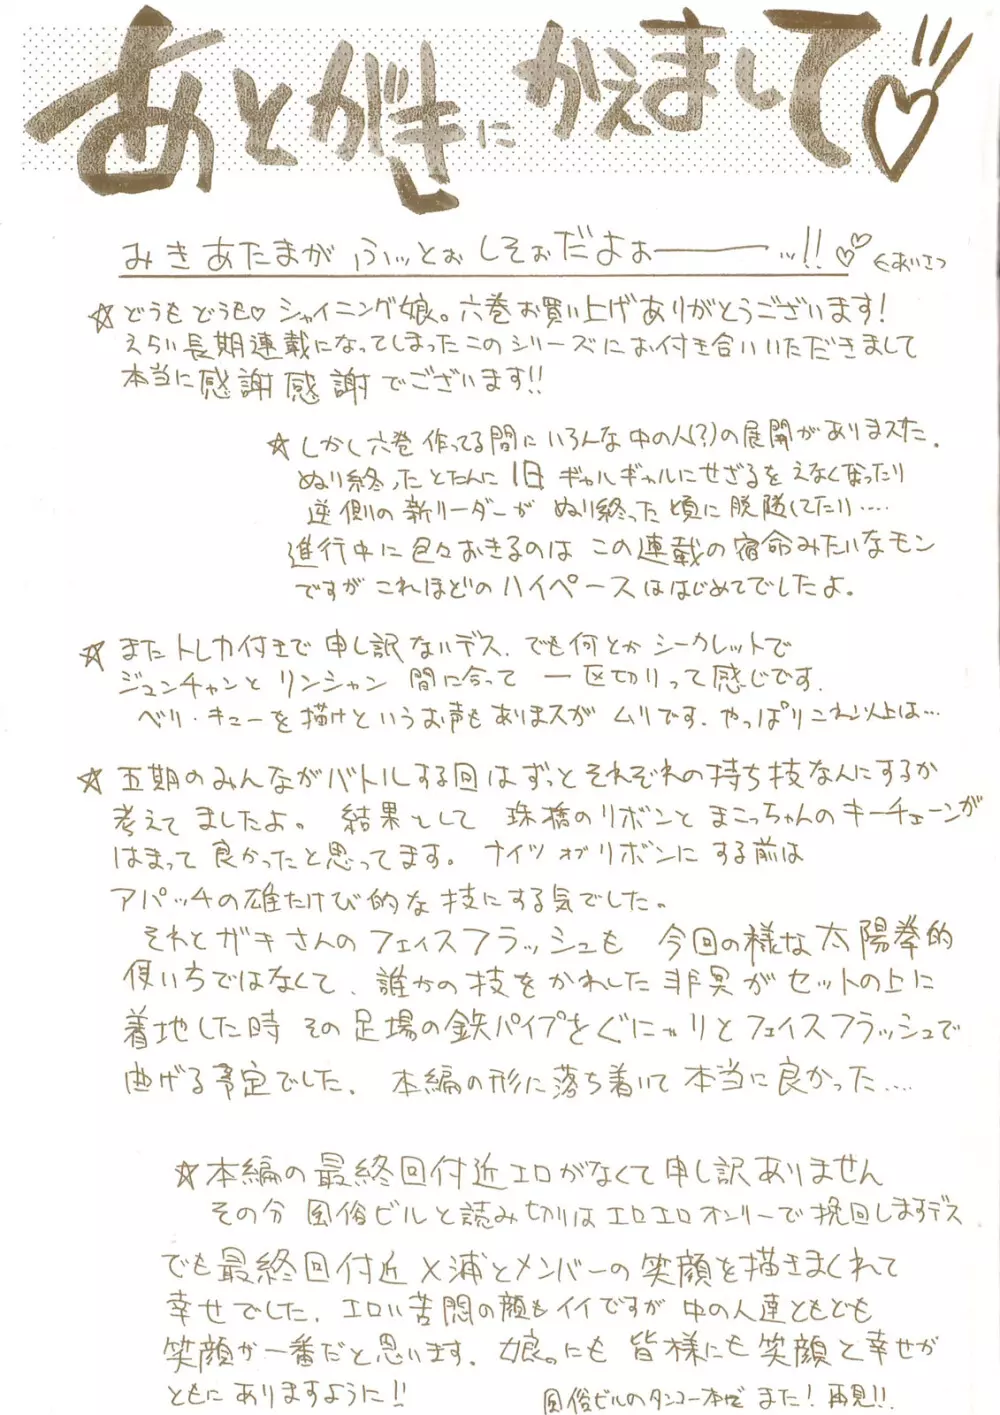 あとがきにかえまして♡
みきあたまが ふぃっとぉ しそぉだよぉーーー…!!♡♡ くあいさつ
☆どうも どうも♡ シャイニング娘。六巻お買い上げありがとうございます!
えらい長期連載になってしまったこのシリーズにお付き合いいただきまして
本当に感謝感謝でございます!!
☆しかし六巻 作ってる間に いろんな中の人(?)の展開がありまスた.
ぬり終ったとたんに 旧 ギャルギャルにせざるをえなくなったり
逆側の新リーダーが ぬり終った頃に脱隊してたり.....
進行中に色々おきるのは この連載の宿命みたいなモン
ですが これほどのハイペースははじめてでしたよ。
☆またトレカ付きで 申し訳ないデス. でも何とか シークレットで
ジュンチャンと リンシャン 間に合って 一区切りって感じです.
ベリ・キューを描けというお声もありまスが ムリです. やっぱりこれ以上は…
☆五期のみんながバトルする回は ずっとそれぞれの持ち技なんにするか
考えてましたよ。 結果として 珠橋のリボンと まこっちゃんのキーチェーンが
はまって良かったと思ってます。ナイツ オブ リボンにする前は
アパッチの雄たけび的な技にする気でした。
それと ガキさんのフェイスフラッシュも 今回の様な太陽拳的
使いちではなくて、誰かの技をかわした非冥がセットの上に
着地した時 その足場の鉄パイプをぐにゃりとフェイスフラッシュで
曲げる予定でした. 本編の形に落ち着いて本当に良かった....
☆本編の最終回付近エロがなくて申し訳ありません
その分 風俗ビルと読み切りはエロエロオンリーで挽回しますデス
でも最終回付近 メ浦とメンバーの笑顔を描きまくれて
幸せでした. エロい苦悶の顔もイイですが 中の人達ともども
笑顔が一番だと思います. 娘。にも 皆様にも笑顔と幸せが
ともに ありますように!!
風俗ビルのタンコー本で また! 再見!!